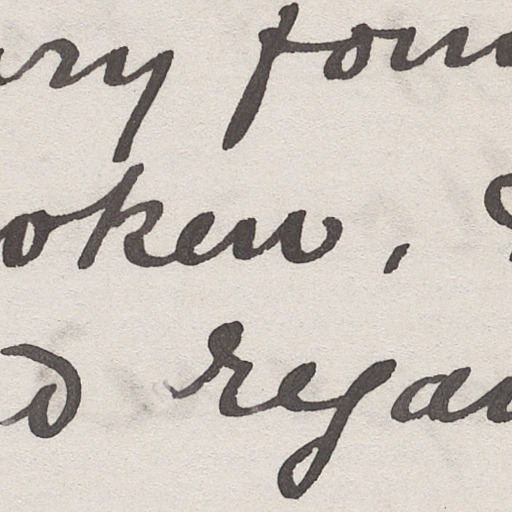 ry fou
oken,
d rega